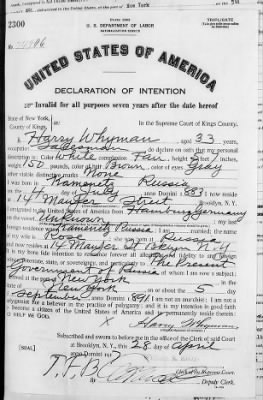 2300
U. S. DEPARTMENT OF LABOR
TRIPLICATE
UNITED STATES OF AMERICA
DECLARATION OF INTENTION
Invalid for all purposes seven years after the date hereof
State of New York,
County of Kings,
In the Supreme Court of Kings County.
I, Harry Whyman, aged 33 years,
occupation Salesman, do declare on oath that my personal
description is: Color White, complexion Fair, height 5 feet inches,
weight 150 pounds, color of hair Brown, color of eyes Gray
other visible distinctive marks None
I was born in Kamenetz Russia
on the 4 day of July, anno Domini 1883; I now reside
at 14 Maujer Street, Brooklyn, N.Y.
I emigrated to the United States of America from Hamburg Germany
on the vessel Unknown; my last
foreign residence was Kamenetz Russia; I am married; the name
of my wife is Rose; she was born at Russia
and now resides at 14 Maujer St Bklyn N.Y.
It is my bona fide intention to renounce forever all allegiance and fidelity to any foreign
prince, potentate, state, or sovereignty, and particularly to The Present
Government of Russia, of whom I am now a subject;
I arrived at the port of New York, in the
State of New York, on or about the 5 day
of September, anno Domini 1891; I am not an anarchist; I am not a
polygamist nor a believer in the practice of polygamy; and it is my intention in good faith
to become a citizen of the United States of America and to permanently reside therein:
SO HELP ME GOD.
X Harry Whyman
Subscribed and sworn to before me in the office of the Clerk of said Court
at Brooklyn, N.Y., this 28 day of April
anno Domini
[SEAL]
Clerk of the Supreme Court.
Deputy Clerk.